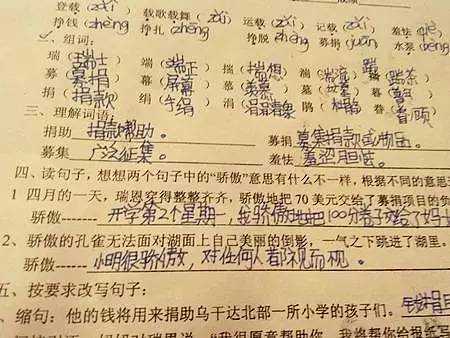 登载（zǎi） 载歌载舞（zài） 运载（zài） 记载（zǎi） 羞怯（qiè）
挣钱（zhèng） 挣扎（zhēng） 挣脱（zhèng） 募捐（juān） 水泵（bèng）
二、组词：
瑞（瑞士） 端（端正） 揣（揣想） 湍（湍流） 踹（踹茶）
募（募捐） 幕（屏幕） 慕（羡慕） 墓（坟墓） 暮（暮色）
捐（捐款） 绢（手绢） 涓（涓涓清泉） 鹃（杜鹃） 眷（眷顾）
三、理解词语：
捐助 捐款帮助。 募捐 募集捐款或物品。
募集 广泛征集。 羞怯 羞涩胆怯。
四、读句子，想想两个句子中的“骄傲”意思有什么不一样，根据不同的意思
1 四月的一天，瑞恩穿得整整齐齐，骄傲地把 70 美元交给了募捐项目的负
骄傲------- 开学第2个星期一，我骄傲地把100分卷子交给了妈
2、骄傲的孔雀无法面对湖面上自己美丽的倒影，一气之下跳进了湖里。
骄傲------ 小明很骄傲，对任何人都视而不见。
五、按要求改写句子：
缩句：他的钱将用来捐助乌干达北部一所小学的孩子们。 钱捐助